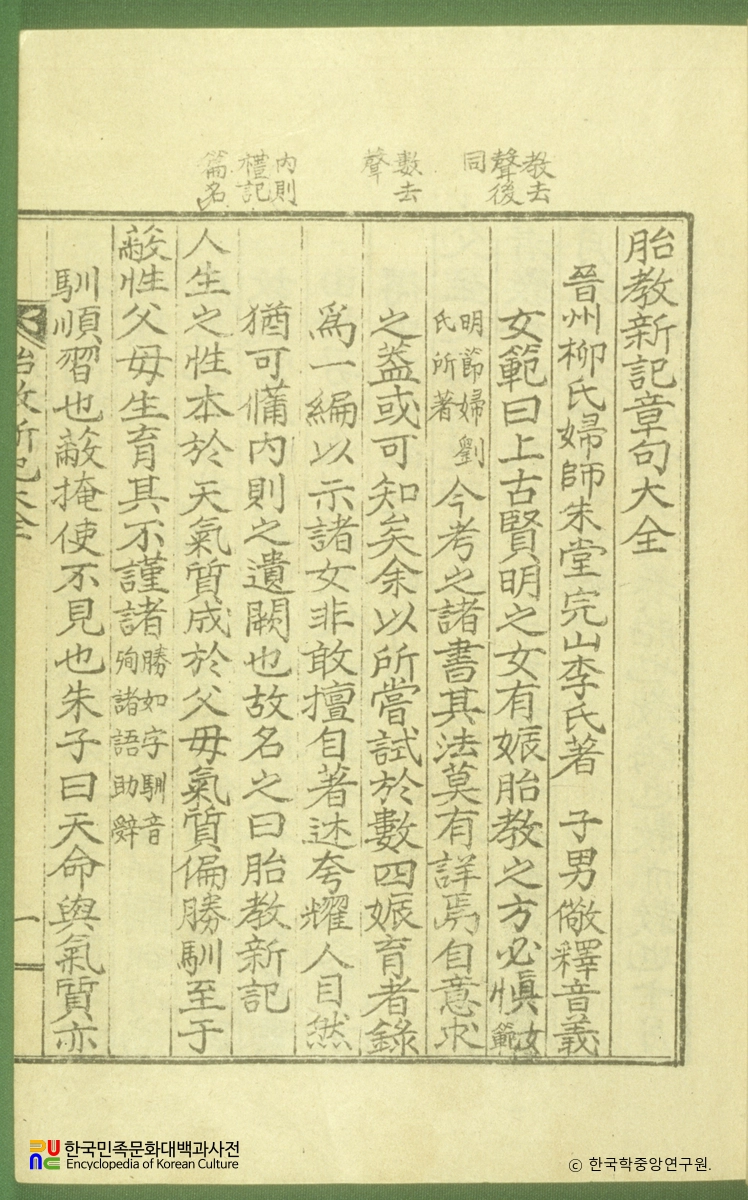 教去
聲後
同
數去
聲
內則
禮記
篇名
胎教新記章句大全
晉州柳氏婦師朱堂完山李氏著 子男儆釋音義
女範曰上古賢明之女有娠胎教之方必愼女範
明節婦劉氏所著今考之諸書其法莫有詳焉自意求
之蓋或可知矣余以所嘗試於數四娠育者錄
爲一編以示諸女非敢擅自著述夸耀人目然
猶可備內則之遺闕也故名之曰胎教新記
人生之性本於天氣質成於父母氣質偏勝馴至于
蔽性父母生育其不謹諸勝如字馴音殉諸語助辭
馴順習也蔽掩使不見也朱子曰天命與氣質亦
胎教新記大全
一
한국민족문화대백과사전
Encyclopedia of Korean Culture
ⓒ 한국학중앙연구원.